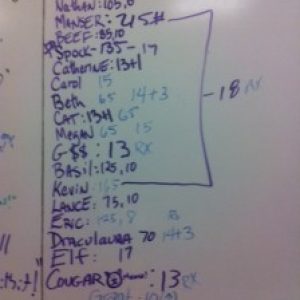 Nathan: 105, 6
MANSER: 45#
BEEF: 85, 10
Spock - 135 - 19
Catherine: 13+1
Carol 15
Beth 65 14+3
CAT: 13+1 65
Megan 65 15
G$$: 13 RX
Basil: 125, 10
Kevin 165
LANCE: 75, 10
ERIC: 125, 8
Draculaura 70 14+3
Elf: 17
COUGAR 13 RX
18 RX